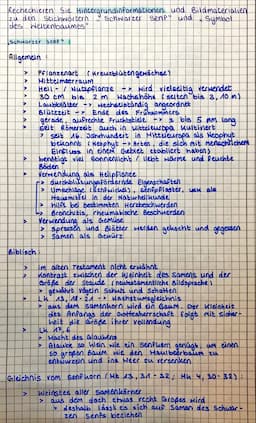 Recherchieren Sie Hintergrundinformationen und Bildmaterialien
zu den Stichwörtern "Schwarzer Senf" und "Symbol
des Weltenbaumes"
Schwarzer Senf:
Allgemein:
> Pflanzenart (Kreuzblütengewächse)
> Mittelmeerraum
> Heil-/Nutzpflanze --> wird vielseitig verwendet
> 30 cm bis 2 m Wuchshöhe (selten bis 3,10 m)
> Laubblätter -> wechselständig angeordnet
> Blütezeit -> Ende des Frühsommers
> gerade, aufrechte Fruchtstiele --> 3 bis 5 mm lang
> seit Römerzeit auch in Mitteleuropa kultiviert
> seit 16. Jahrhundert in Mitteleuropa als Neophyt
bekannt (Neophyt --> Arten, die sich mit menschlichem
Einfluss in einem Gebiet etabliert haben)
> benötigt viel Sonnenlicht / liebt warme und feuchte
Böden
> Verwendung als Heilpflanze
> durchblutungsfördernde Eigenschaften
> Umschläge (Senfwickel), Senfpflaster, usw als
Hausmittel in der Naturheilkunde
> Hilft bei bestimmten Herzbeschwerden
> Bronchitis, rheumatische Beschwerden
> Verwendung als Gemüse
> Sprossen und Blätter werden gekocht und gegessen
> Samen als Gewürz
Biblisch:
> Im alten Testament nicht erwähnt
> Kontrast zwischen der Kleinheit des Samens und der
Größe der Staude (neutestamentliche Bildsprache)
> gewährt Vögeln Schutz und Schatten
> Lk 13, 18-21 -> Wachstumsgleichnis
> aus dem Samenkorn wird ein Baum. Der Kleinheit
des Anfangs der Gottesherrschaft folgt mit Sicher-
heit die Größe ihrer Vollendung
> Lk 17, 6
> Macht des Glaubens
> Glaube so klein wie ein Senfkorn genügt, um einen
so großen Baum wie den Maulbeerbaum zu
entwurzeln und ins Meer zu versenken
Gleichnis vom Senfkorn (Mt 13, 31-32; Mk 4, 30-32):
> kleinstes aller Samenkörner
> aus dem doch etwas recht Großes wird
> deshalb lässt es sich auf Samen des Schwar-
zen Senfs beziehen